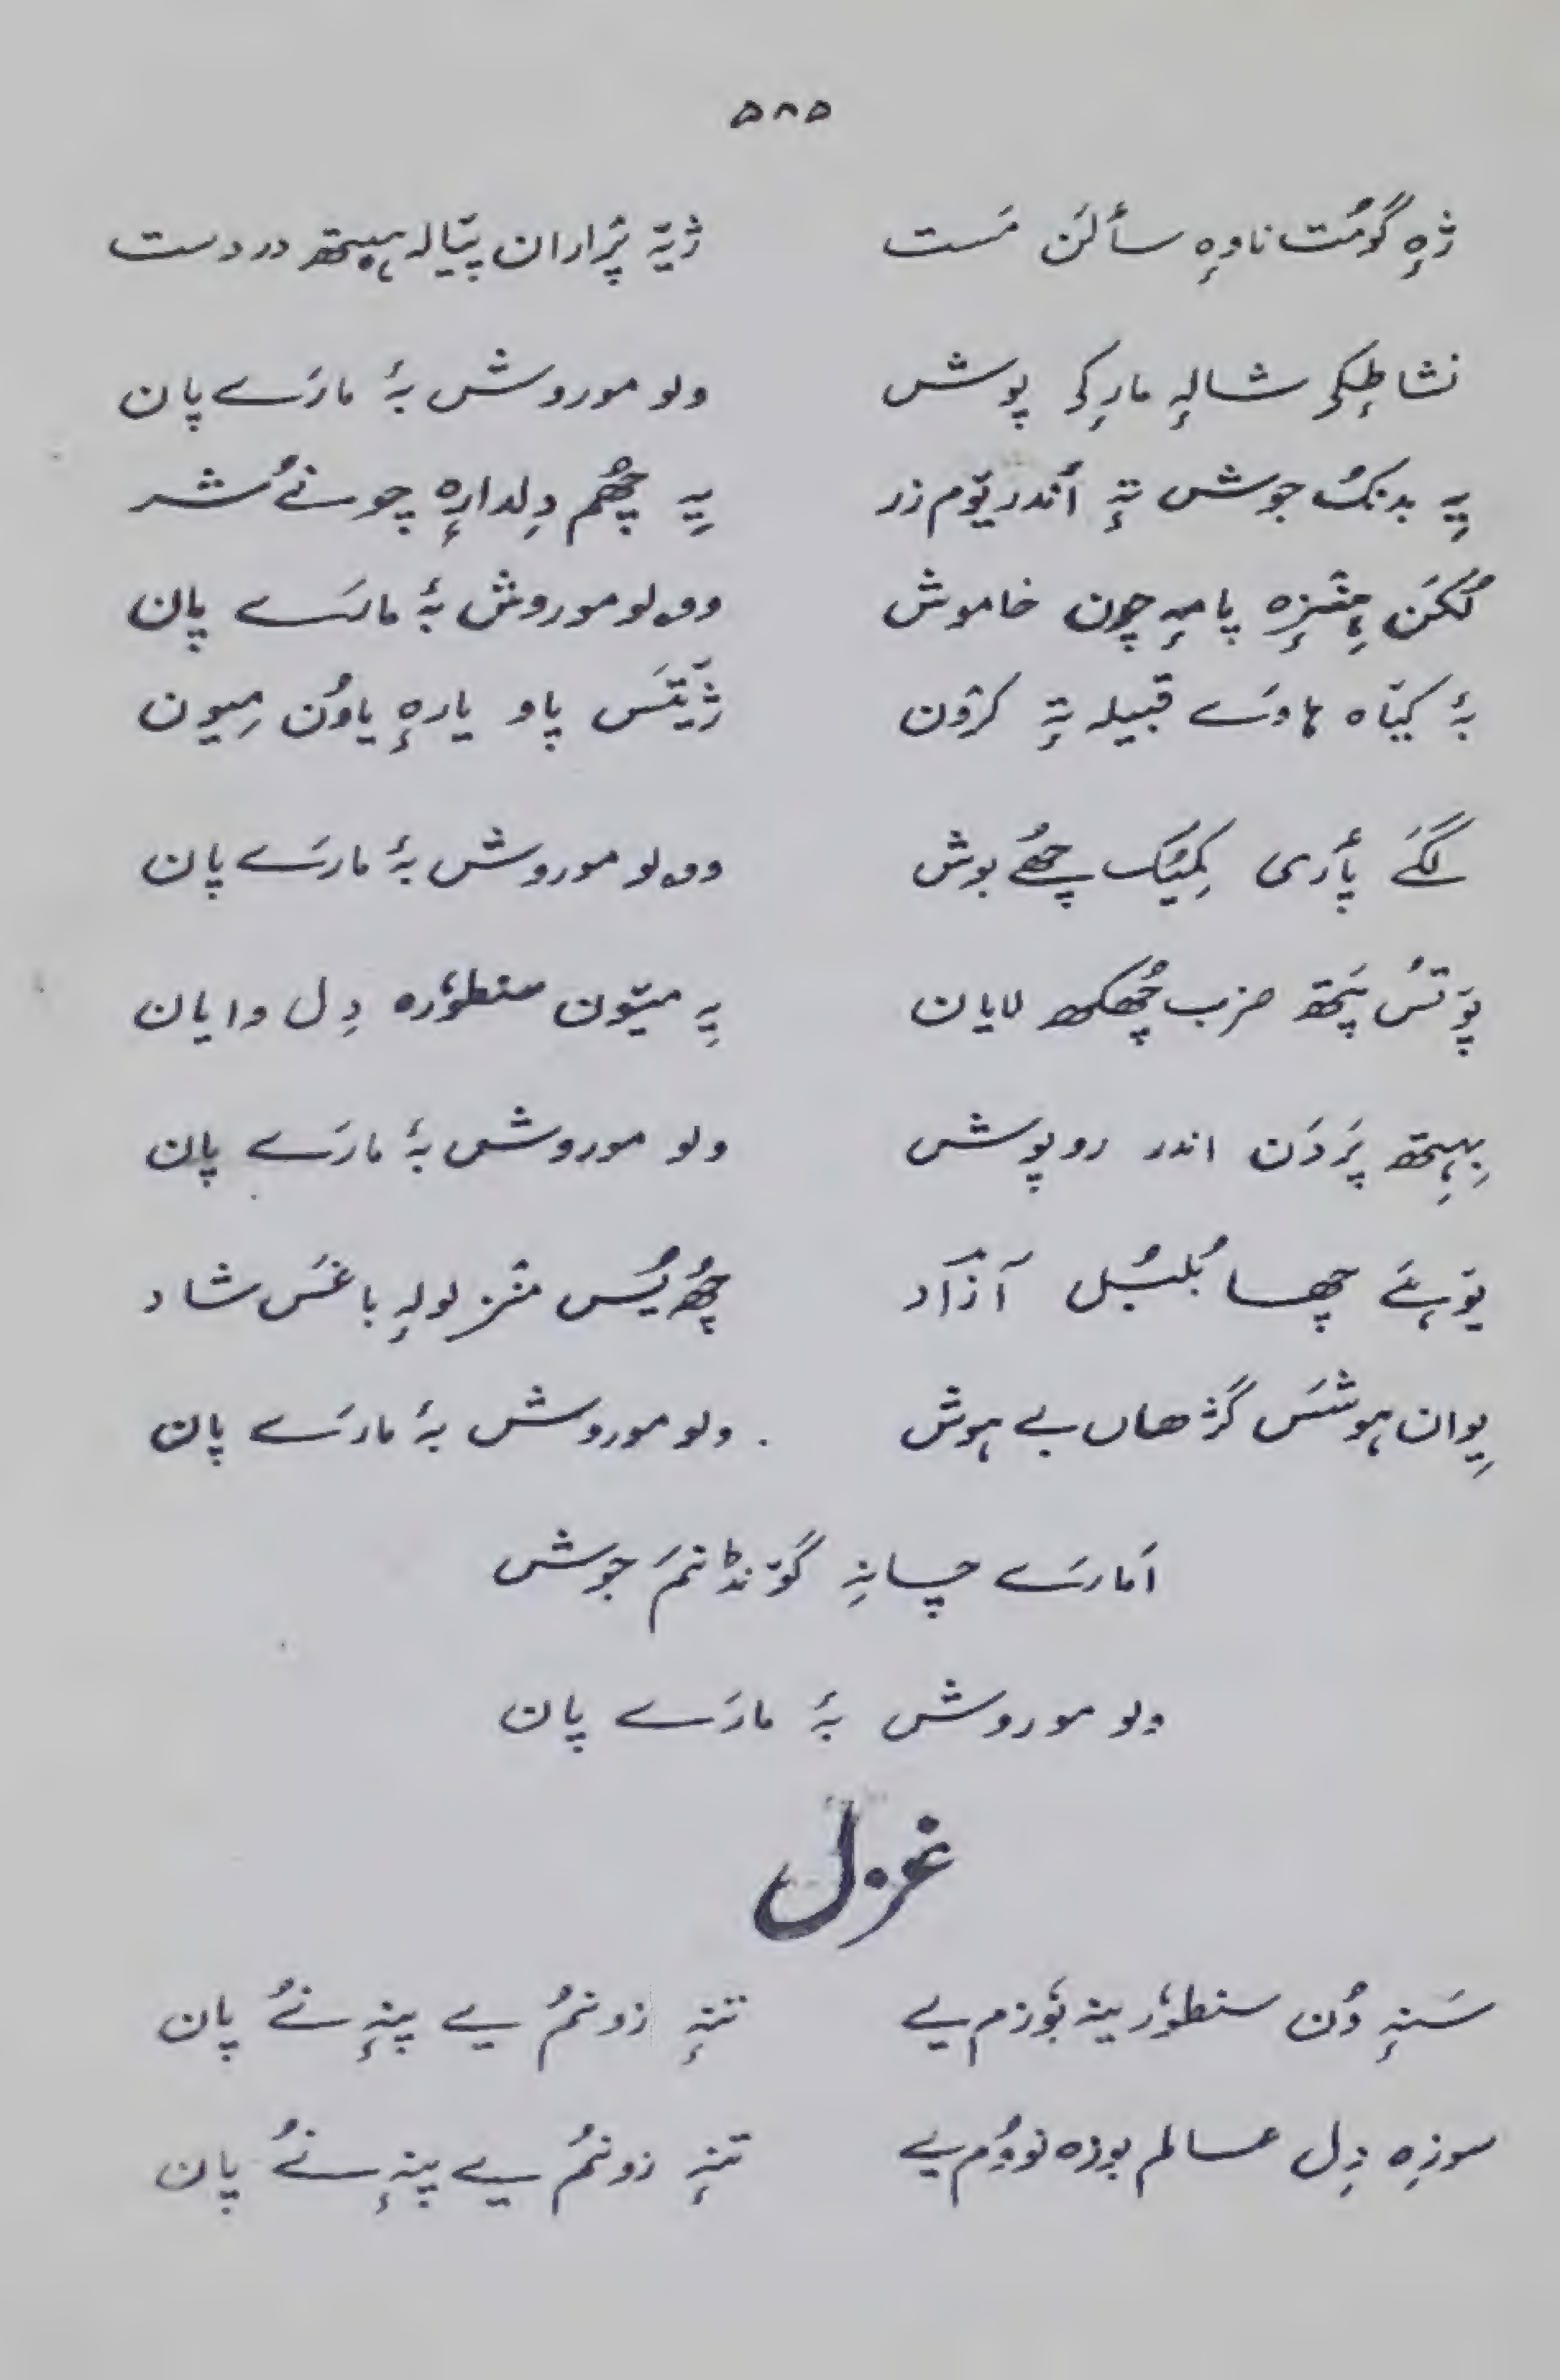 ۵۸۵
ژٕہ گومُت ناوٕہ سأלَن مَست ژیٚہ پرٛاران پیٛالہ ہیٚتھ در دست
نشاطٕکہِ شالہٕ مارٕکہِ پوش ولو مو روش بۂ مارَے پان
یہِ بدنُک جوش تہٕ أندریوٚم زر یہِ چھُم دِلدارٕہ چونے شُر
لُکَن ہِنٛزٕہ پامہٕ چون خاموش وۄلو مو روش بۂ مارَے پان
بۂ کیٛاہ ہاوَے قبیلہ تہٕ کرٛون ژیٚتَس پاو یارٕہ یاوُن میون
لگَے پأری کمیُک چھُے بوش وۄلو مو روش بۂ مارَے پان
پوٚتُس پیٚتھ ضرب چھُکھ لایان یہِ میوٚن سنطوٗرہ دِل وایان
بِہِتھ پَردَن اندر روپوش ولو مو روش بۂ مارَے پان
یوٚہَے چھا بُلبُل آزاد چھُ یُس منٛز لولہٕ باغَس شاد
یِوان ہوشَس گژھاں بے ہوش ولو مو روش بۂ مارَے پان
اَمارَے چانہِ گوٚنڈنَم جوش
ولو مو روش بۂ مارَے پان
غزل
سَنہٕ وُن سنطوٗر ینہ بوٗزم یے تنہٕ زونمُ یے پنہٕ نُے پان
سوزِہ دِل عالم بوزہ نووُم یے تنہٕ زونمُ یے پنہٕ نُے پان